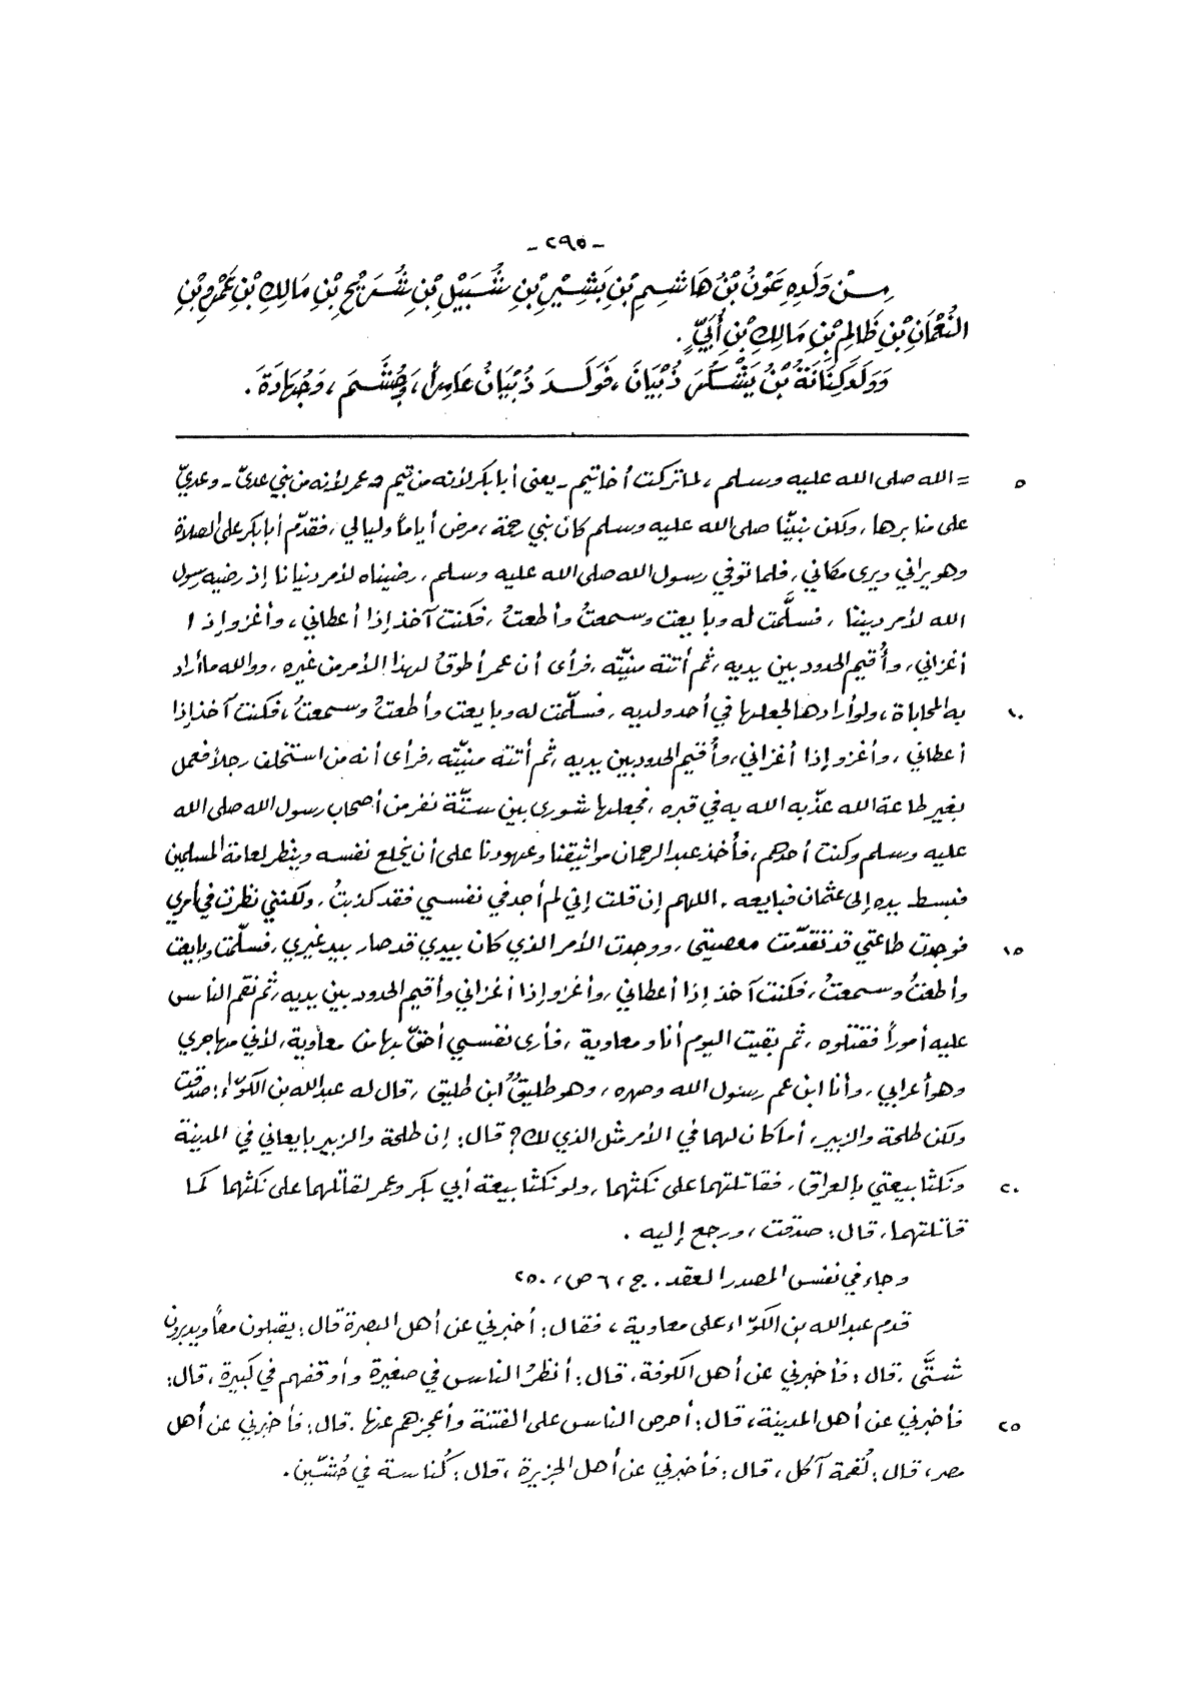 - ٢٩٥ -
مِنْ وَلَدِهِ عَوْنُ بْنُ هَاشِمِ بْنِ بَشِيْرِ بْنِ شُبَيْلِ بْنِ شُرَيْحِ بْنِ مَالِكِ بْنِ عَمْرِو بْنِ
النُّعْمَانِ بْنِ ظَالِمِ بْنِ مَالِكِ بْنِ أُبَيٍّ .
وَوَلَدَ كِنَانَةُ بْنُ يَشْكُرَ ذُبْيَانَ ، فَوَلَدَ ذُبْيَانُ عَامِراً ، وَجُشَمَ ، وَجُهَادَةَ .
٥ = الله صلى الله عليه وسلم ، لما تركت أخاتيم - يعني أبا بكر لأنه من تيم و عمر لأنه من بني عديّ - وعديّ
على منابرها ، ولكن نبيّنا صلى الله عليه وسلم كان نبي رحمة ، مرض أياماً وليالي ، فقدّم أبا بكر على الصلاة
وهو يراني ويرى مكاني ، فلما توفي رسول الله صلى الله عليه وسلم ، رضيناه لأمر دنيانا إذ رضيه رسول
الله لأمر ديننا ، فسلَّمت له وبايعت وسمعتُ وأطعتُ ، فكنت آخذ إذا أعطاني ، وأغزو إذا
أغزاني ، وأُقيم الحدود بين يديه ، ثم أتته منيّته ، فرأى أن عمر أطوقُ لهذا الأمر من غيره ، ووالله ما أراد
١٠ به المحاباة ، ولو أرادها لجعلها في أحد ولديه ، فسلّمت له وبايعت وأطعتُ وسمعتُ ، فكنت آخذ إذا
أعطاني ، وأغزو إذا أغزاني ، وأُقيم الحدود بين يديه ، ثم أتته منيّته ، فرأى أنه من استخلف رجلاً فعمل
بغير طاعة الله عذّبه الله به في قبره ، فجعلها شورى بين ستّة نفر من أصحاب رسول الله صلى الله
عليه وسلم وكنت أحدهم ، فأُخذ عبد الرحمان مواثيقنا وعهودنا على أن يخلع نفسه وينظر لعامة المسلمين
فبسط يده إلى عثمان فبايعه . اللهم إن قلت إني لم أجد في نفسي فقد كذبتُ ، ولكنني نظرت في أمري
١٥ فوجدت طاعتي قد تقدّمت معصيتي ، ووجدت الأمر الذي كان بيدي قد صار بيد غيري ، فسلّمت وبايعت
وأطعتُ وسمعتُ ، فكنت آخذ إذا أعطاني ، وأغزو إذا أغزاني وأقيم الحدود بين يديه ، ثم نقم الناس
عليه أموراً فقتلوه ، ثم بقيت اليوم أنا ومعاوية ، فأرى نفسي أحقّ بها من معاوية ، لأني مهاجري
وهو أعرابي ، وأنا ابن عم رسول الله وصهره ، وهو طليقُ ابن طليق ، قال له عبد الله بن الكوّاء : صدقت
ولكن طلحة والزبير ، أما كان لهما في الأمر مثل الذي لك ؟ قال : إن طلحة والزبير بايعاني في المدينة
٢٠ ونكثا بيعتي بالعراق ، فقاتلتهما على نكثهما ، ولو نكثا بيعة أبي بكر وعمر لقاتلهما على نكثهما كما
قاتلتهما ، قال : صدقت ، ورجع إليه .
وجاء في نفس المصدر العقد . ج ، ٦ ص ، ٢٥٠
قدم عبد الله بن الكوّاء على معاوية ، فقال : أخبرني عن أهل البصرة قال : يقبلون معاً ويدبرون
شتَّى . قال : فأخبرني عن أهل الكوفة ، قال : أنظرُ الناس في صغيرة وأوقفهم في كبيرة ، قال :
٢٥ فأخبرني عن أهل المدينة ، قال : أحرص الناس على الفتنة وأعجزهم عنها . قال : فأخبرني عن أهل
مصر ، قال : لُقمة آكل ، قال : فأخبرني عن أهل الجزيرة ، قال : كُناسة في حُشّين .